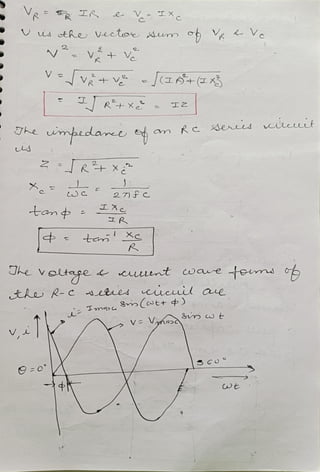 V_R = IR & V_C = IX_C
V is the vector sum of V_R & V_C
V² = V_R² + V_C²
V = √(V_R² + V_C²) = √((IR)² + (IX_C)²)
= I√(R² + X_C²) = IZ
The impedance of an RC series circuit
is
Z = √(R² + X_C²)
X_C = 1/ωC = 1/2πfC
tanφ = IX_C/IR
φ = tan⁻¹ X_C/R
The voltage & current wave forms of
the R-C series circuit are
i = Imax sin(ωt + φ)
V, i
V = Vmax sin ωt
θ = 0°
360°
φ
ωt